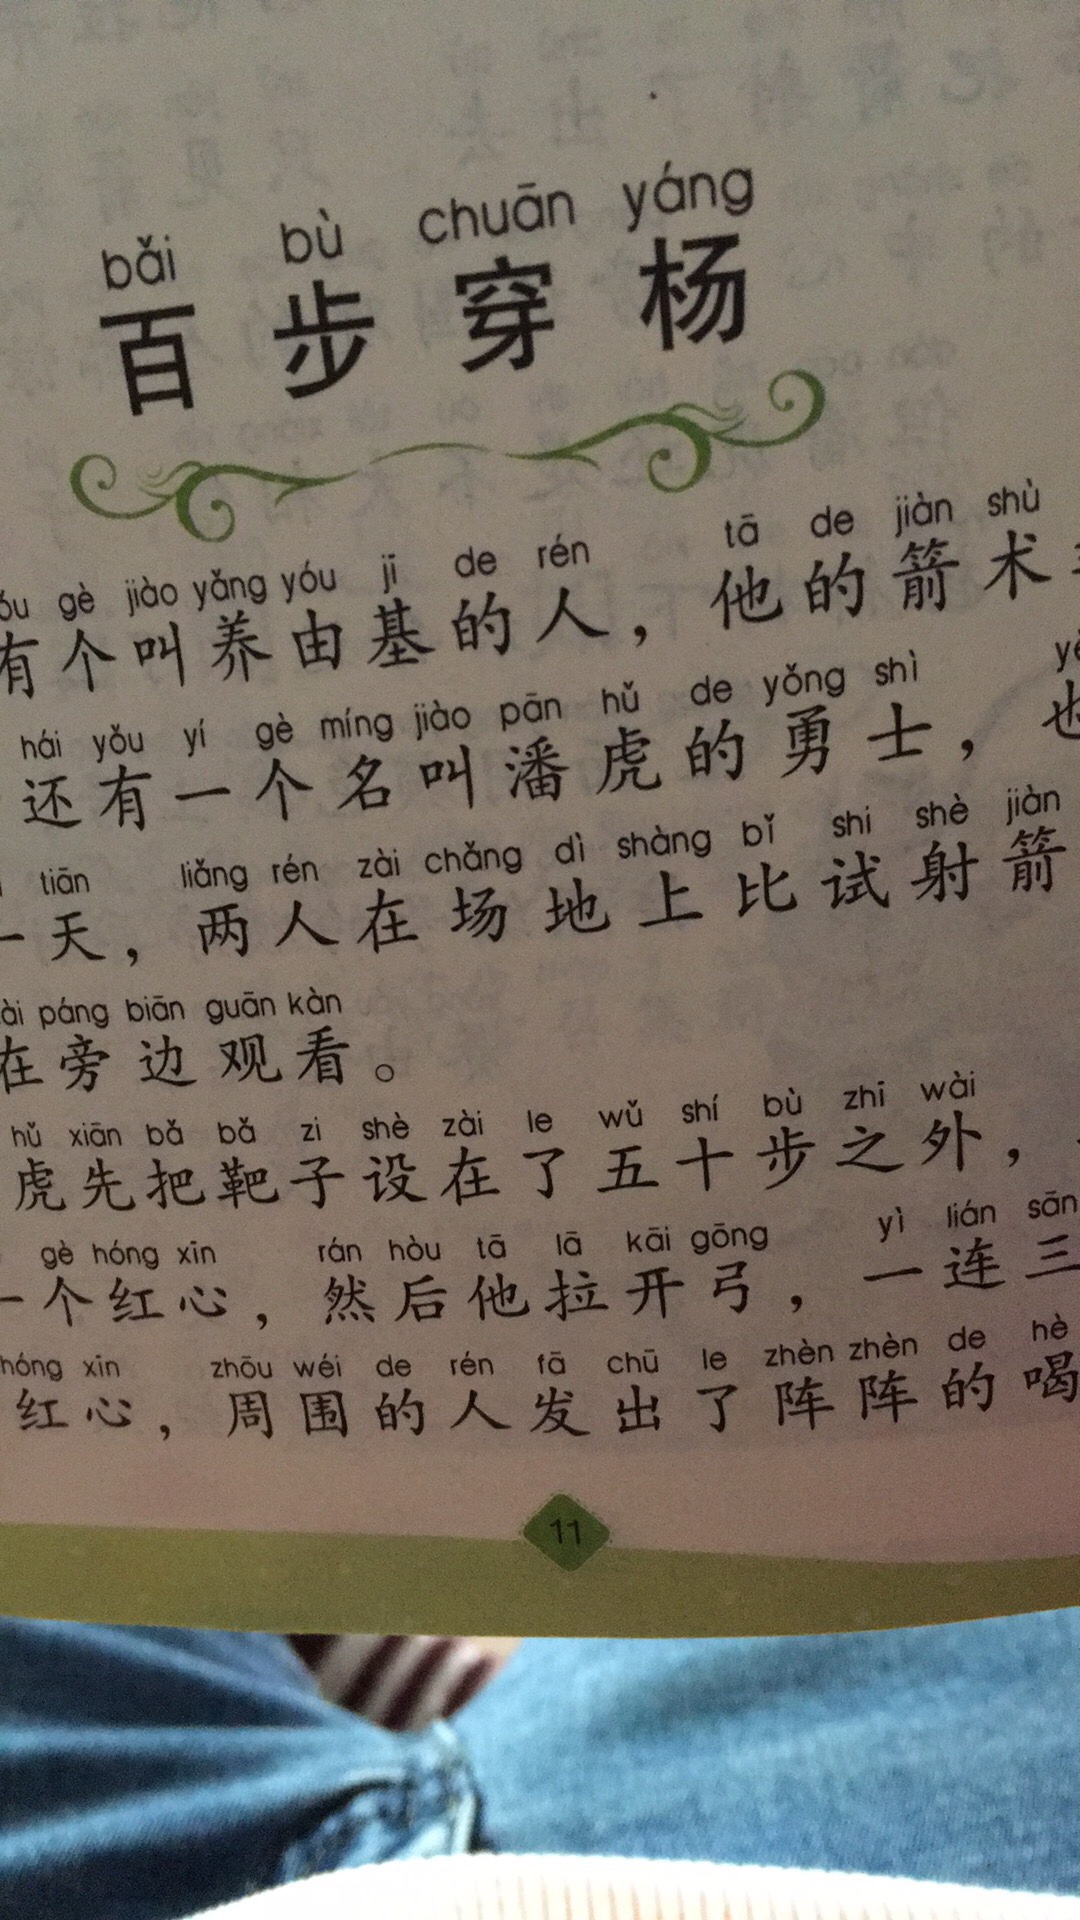 bǎi bù chuān yáng
百步穿杨
gè jiào yǎng yóu jī de rén tā de jiàn shù
有个叫养由基的人，他的箭术
hái yǒu yí gè míng jiào pān hǔ de yǒng shì
还有一个名叫潘虎的勇士，也
tiān liǎng rén zài chǎng dì shàng bǐ shi shè jiàn
一天，两人在场地上比试射箭
páng biān guān kàn
在旁边观看。
hǔ xiān bǎ bǎ zi shè zài le wǔ shí bù zhī wài
虎先把靶子设在了五十步之外，
gè hóng xīn rán hòu tā lā kāi gōng yì lián sān
一个红心，然后他拉开弓，一连三
hóng xīn zhōu wéi de rén fā chū le zhèn zhèn de hè
红心，周围的人发出了阵阵的喝
11